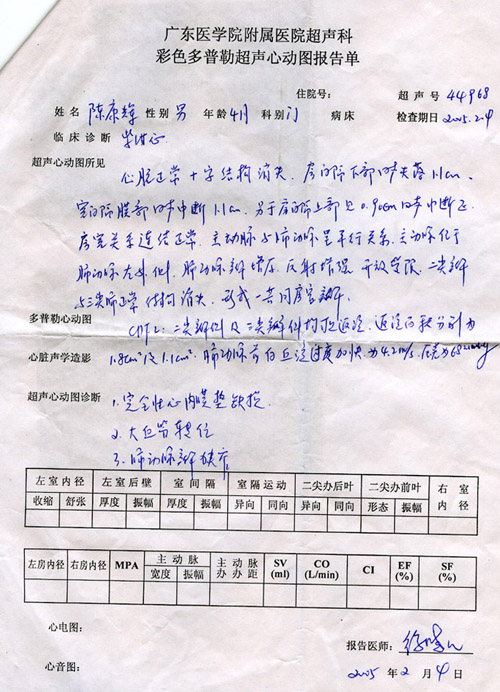 广东医学院附属医院超声科
彩色多普勒超声心动图报告单
住院号: 超声号 44968
姓名 陈康辉 性别 男 年龄 4月 科别 门 病床 检查期日 2005.2.4
临床诊断
超声心动图所见
心脏正常十字结构消失. 房间隔下部回声失落1.1cm.
室间隔膜部回声中断1.1cm. 另于房间隔上部见0.90cm回声中断区
房室关系连结正常. 主动脉与肺动脉呈平行关系. 主动脉位于
肺动脉左外侧. 肺动脉瓣增厚. 反射增强 开放受限. 二尖瓣
与三尖瓣正常结构消失. 形成一共同房室瓣.
多普勒心动图
CDFI: 二尖瓣侧及三尖瓣侧均探返流. 返流面积分别为
心脏声学造影 1.8cm² 及 1.1cm². 肺动脉前向血流速度加快为4.2m/s. 压差为68mmHg
超声心动图诊断 1. 完全性心内膜垫缺损
2. 大血管转位
3. 肺动脉瓣狭窄
左室内径 左室后壁 室间隔 室隔运动 二尖办后叶 二尖办前叶 右室内径
收缩 舒张 厚度 振幅 厚度 振幅 异向 同向 异向 同向 形态 振幅
左房内径 右房内径 MPA 主动脉 主动办办距 SV (ml) CO (L/min) CI EF (%) SF (%)
宽度 振幅
心电图:
报告医师:
心音图: 2005 年 2 月 4 日